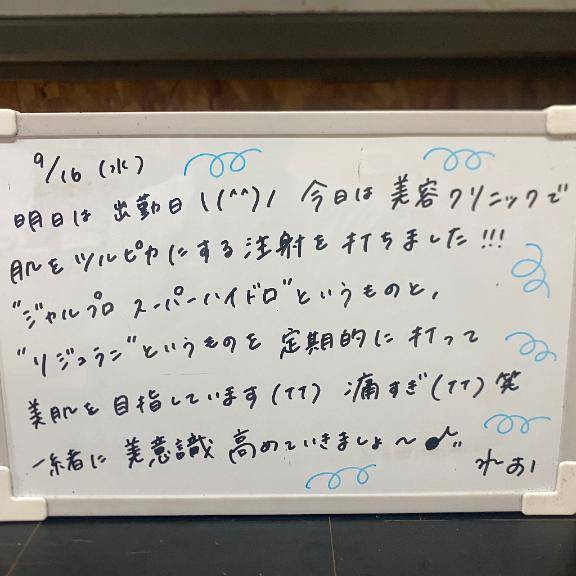 9/16 (水)
明日は 出勤日 \(^^)/ 今日は 美容クリニックで
肌を ツルピカにする注射を 打ちました!!!
"ジャルプロ スーパーハイドロ"というものと,
"リジュラン"というものを 定期的に 打って
美肌を 目指しています(TT) 痛すぎ(TT) 笑
一緒に 美意識 高めていきましょ〜♪"